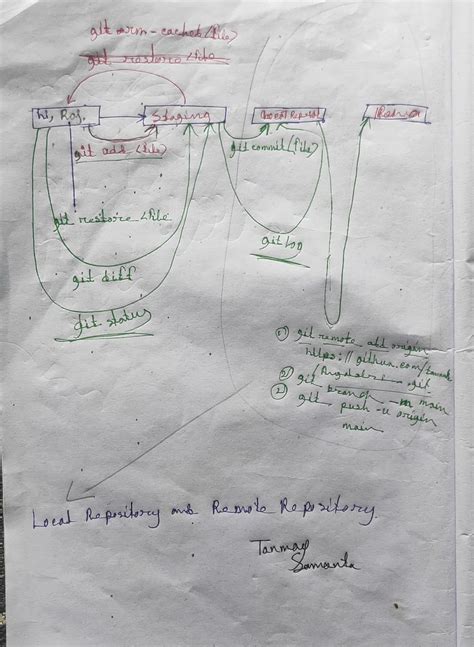 git rm -cached <file>
git restore <file
Staging
git add <file>
git commit <file>
git restore <file
git log
git diff
git status
git remote add origin
https://github.com/
.git
git branch -m main
git push -u origin
main
Local Repository and Remote Repository.
Tanmay
Samanta